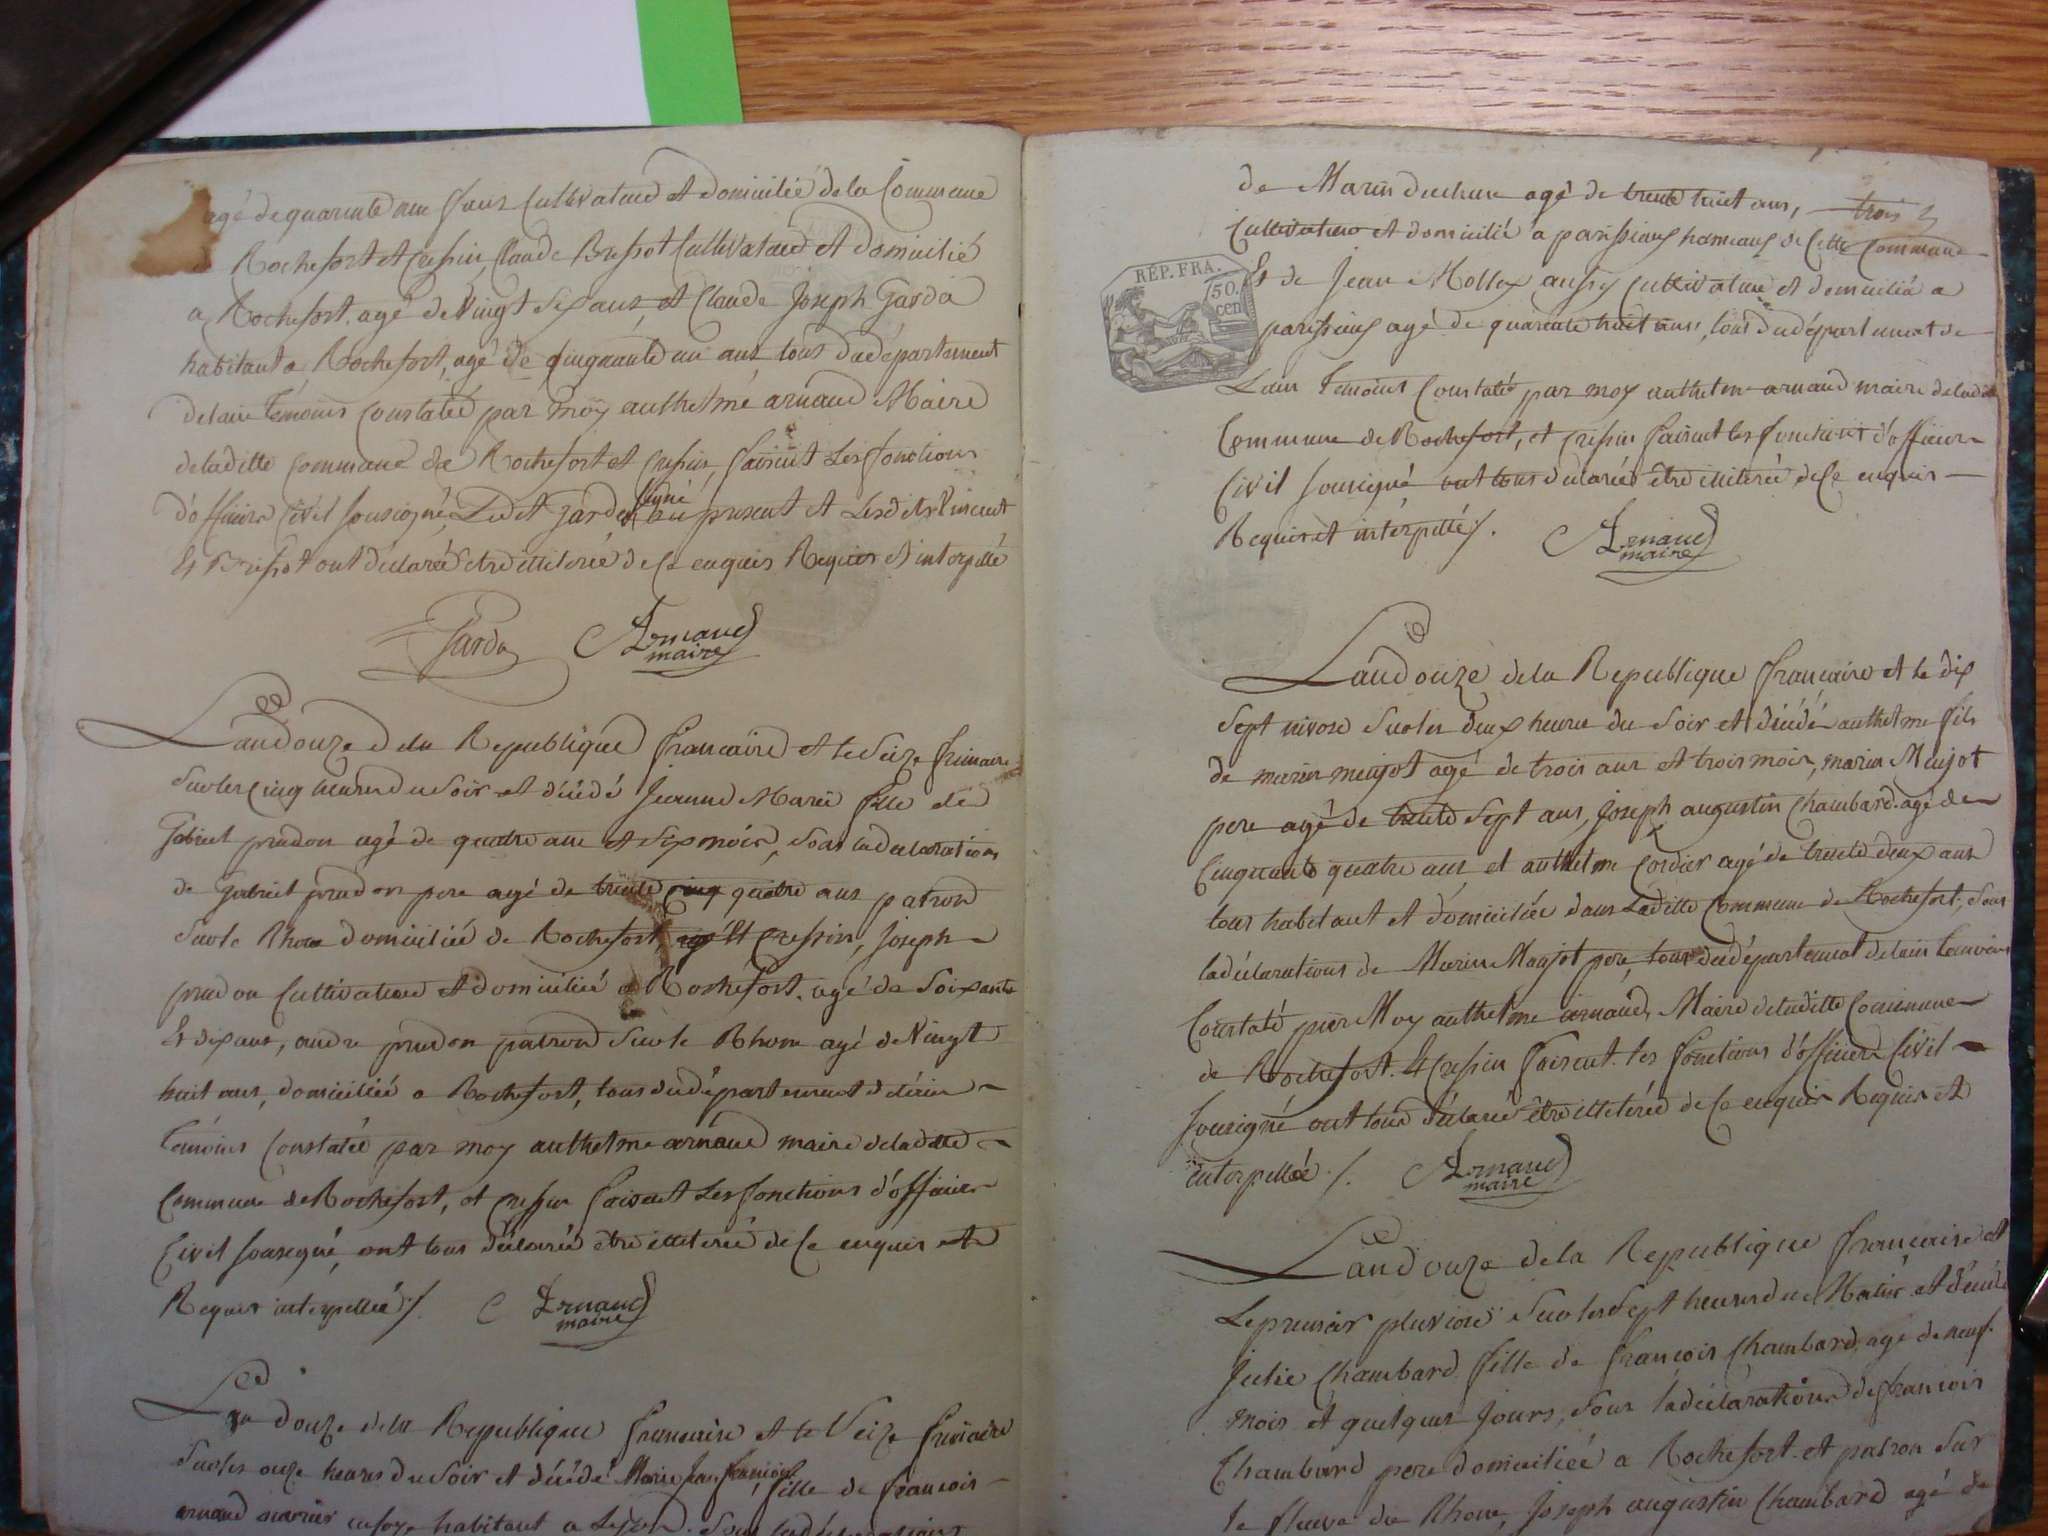 agé de quarante ans Cultivateur et domicilié de la Commune
Rochefort et Cressin, Claude Bressot Cultivateur et domicilié
a Rochefort agé de Vingt Six ans et Claude Joseph Garda
habitant a Rochefort, agé de cinquante un ans, tous du département
de lain Témoins Constatée par moy anthelme arnaud Maire
de laditte Commune de Rochefort et Cressin faisant Les fonctions
d'officier Civil soussigné, Ledit Garda signé au present et Lesdits Vincent
Et Bressot ont déclarée être illiterée de Ce enquis Requis et interpellé
Garda Arnaud
maire
Lan Douze de la Republique francaise et le Seize frimaire
Sur les Cinq heures du Soir et décédé Jeanne Marie fille de
Gabriel prudon agé de quatre ans et Six mois, Sous la declaration
de Gabriel prudon pere agé de trente cinq quatre ans patron
Sur le Rhone domiciliée de Rochefort, Et Cressin, Joseph
prudon Cultivateur et domicilié a Rochefort agé de Soixante
Et dix ans, andre prudon patron Sur le Rhone agé de Vingt
huit ans, domiciliée a Rochefort, tous du département de lain
Temoins Constatée par moy anthelme arnaud maire de laditte
Commune de Rochefort, et Cressin faisant Les fonctions d'officier
Civil soussigné, ont tous déclarée être illiterée de Ce enquis et
Requis interpellée /. Arnaud
maire
Lan douze de la Republique francaise et le Seize frimaire
Sur les onze heures du Soir et décédé Marie fille de francois
arnaud habitant a Sous la declaration
de Marin agé de trente huit ans, trois
Cultivateur et domicilié a parissieux hameaux de Cette Commune
RÉP. FRA.
50.
cen
Et de Jean Mollex aussy Cultivateur et domicilié a
parissieux agé de quarante huit ans, tous du département de
Lain Temoins Constaté par moy anthelme arnaud maire de ladite
Commune de Rochefort, et Cressin faisant les fonctions d'officier
Civil soussigné ont tous déclarée être illiterée de Ce enquis
Requis et interpellé /. Arnaud
maire
Lan Douze de la Republique francaise et le dix
Sept nivose Sur les deux heures du Soir et décédé anthelme fils
de marin meujot agé de trois ans et trois mois, marin Meujot
pere agé de trente Sept ans, Joseph augustin Chambard agé de
Cinquante quatre ans et anthelme Cordier agé de trente deux ans
tous habitant et domiciliée dans Laditte Commune de Rochefort, Sous
la déclarations de Marin Meujot pere, tous du département de lain Temoins
Constaté par Moy anthelme arnaud, Maire de laditte Commune
de Rochefort Et Cressin faisant les fonctions d'officier Civil
soussigné ont tous déclarée être illiterée de Ce enquis Requis et
interpellée /. Arnaud
maire
Lan Douze de la Republique francaise et
Le premier pluviose Sur les Sept heures du Matin et décédé
Julie Chambard fille de francois Chambard, agé de neuf
mois et quelques Jours, Sous la déclaration de francois
Chambard pere domiciliée a Rochefort et patron Sur
le fleuve du Rhone, Joseph augustin Chambard agé de